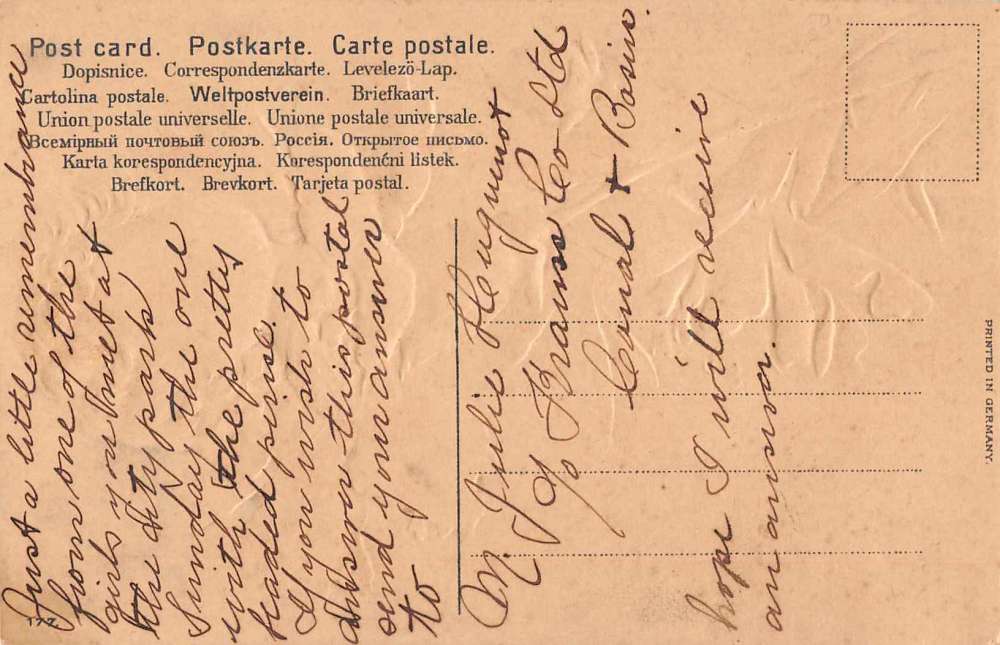 Post card. Postkarte. Carte postale.
Dopisnice. Correspondenzkarte. Levelezö-Lap.
Cartolina postale. Weltpostverein. Briefkaart.
Union postale universelle. Unione postale universale.
Всемірный почтовый союзъ. Россія. Открытое письмо.
Karta korespondencyjna. Korespondenčni listek.
Brefkort. Brevkort. Tarjeta postal.
Just a little remembrance
from one of the
girls you met at
the City park
Sunday the one
with the pretty
beaded purse.
If you wish to
answer this postal
send your answer
to
M. Julie
% Krauss Co Ltd
Canal + Basin.
hope I will receive
an answer.
177
PRINTED IN GERMANY.